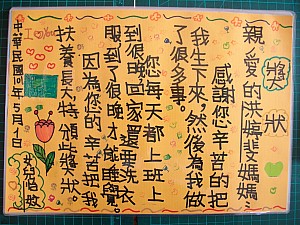 獎狀
親愛的洪婧斐媽媽:
感謝您辛苦的把
我生下來,然後為我做
了很多事。
您每天都上班上
到很晚回家還要洗衣
服到了很晚才能睡覺。
因為您的辛苦把我
扶養長大,特頒此獎狀。
中華民國101年5月1日